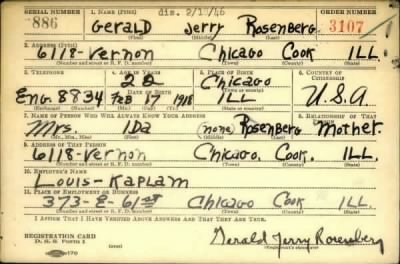 SERIAL NUMBER 1. NAME (Print) dis. 2/1/46 ORDER NUMBER
886 Gerald Jerry Rosenberg 3107
(First) (Middle) (Last)
2. ADDRESS (Print)
6118-Vernon Chicago Cook ILL.
(Number and street or R. F. D. number) (Town) (County) (State)
3. TELEPHONE 4. AGE IN YEARS 5. PLACE OF BIRTH 6. COUNTRY OF CITIZENSHIP
22 Chicago
DATE OF BIRTH (Town or county)
Eng. 8834 Feb 17 1918 ILL U.S.A
(Exchange) (Number) (Mo.) (Day) (Yr.) (State or country)
7. NAME OF PERSON WHO WILL ALWAYS KNOW YOUR ADDRESS 8. RELATIONSHIP OF THAT PERSON
Mrs Ida (none) Rosenberg Mother.
(Mr., Mrs., Miss) (First) (Middle) (Last)
9. ADDRESS OF THAT PERSON
6118-Vernon Chicago. Cook. ILL.
(Number and street or R. F. D. number) (Town) (County) (State)
10. EMPLOYER'S NAME
Louis-Kaplam
11. PLACE OF EMPLOYMENT OR BUSINESS
373-E-61st Chicago Cook ILL
(Number and street or R. F. D. number) (Town) (County) (State)
I AFFIRM THAT I HAVE VERIFIED ABOVE ANSWERS AND THAT THEY ARE TRUE.
REGISTRATION CARD
D. S. S. Form 1
Gerald Jerry Rosenberg
(Registrant's signature)